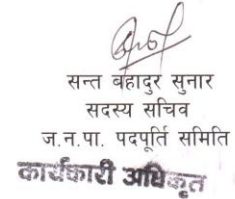 सन्त बहादुर सुनार
सदस्य सचिव
ज.न.पा. पदपूर्ति समिति
कार्यकारी अधिकृत